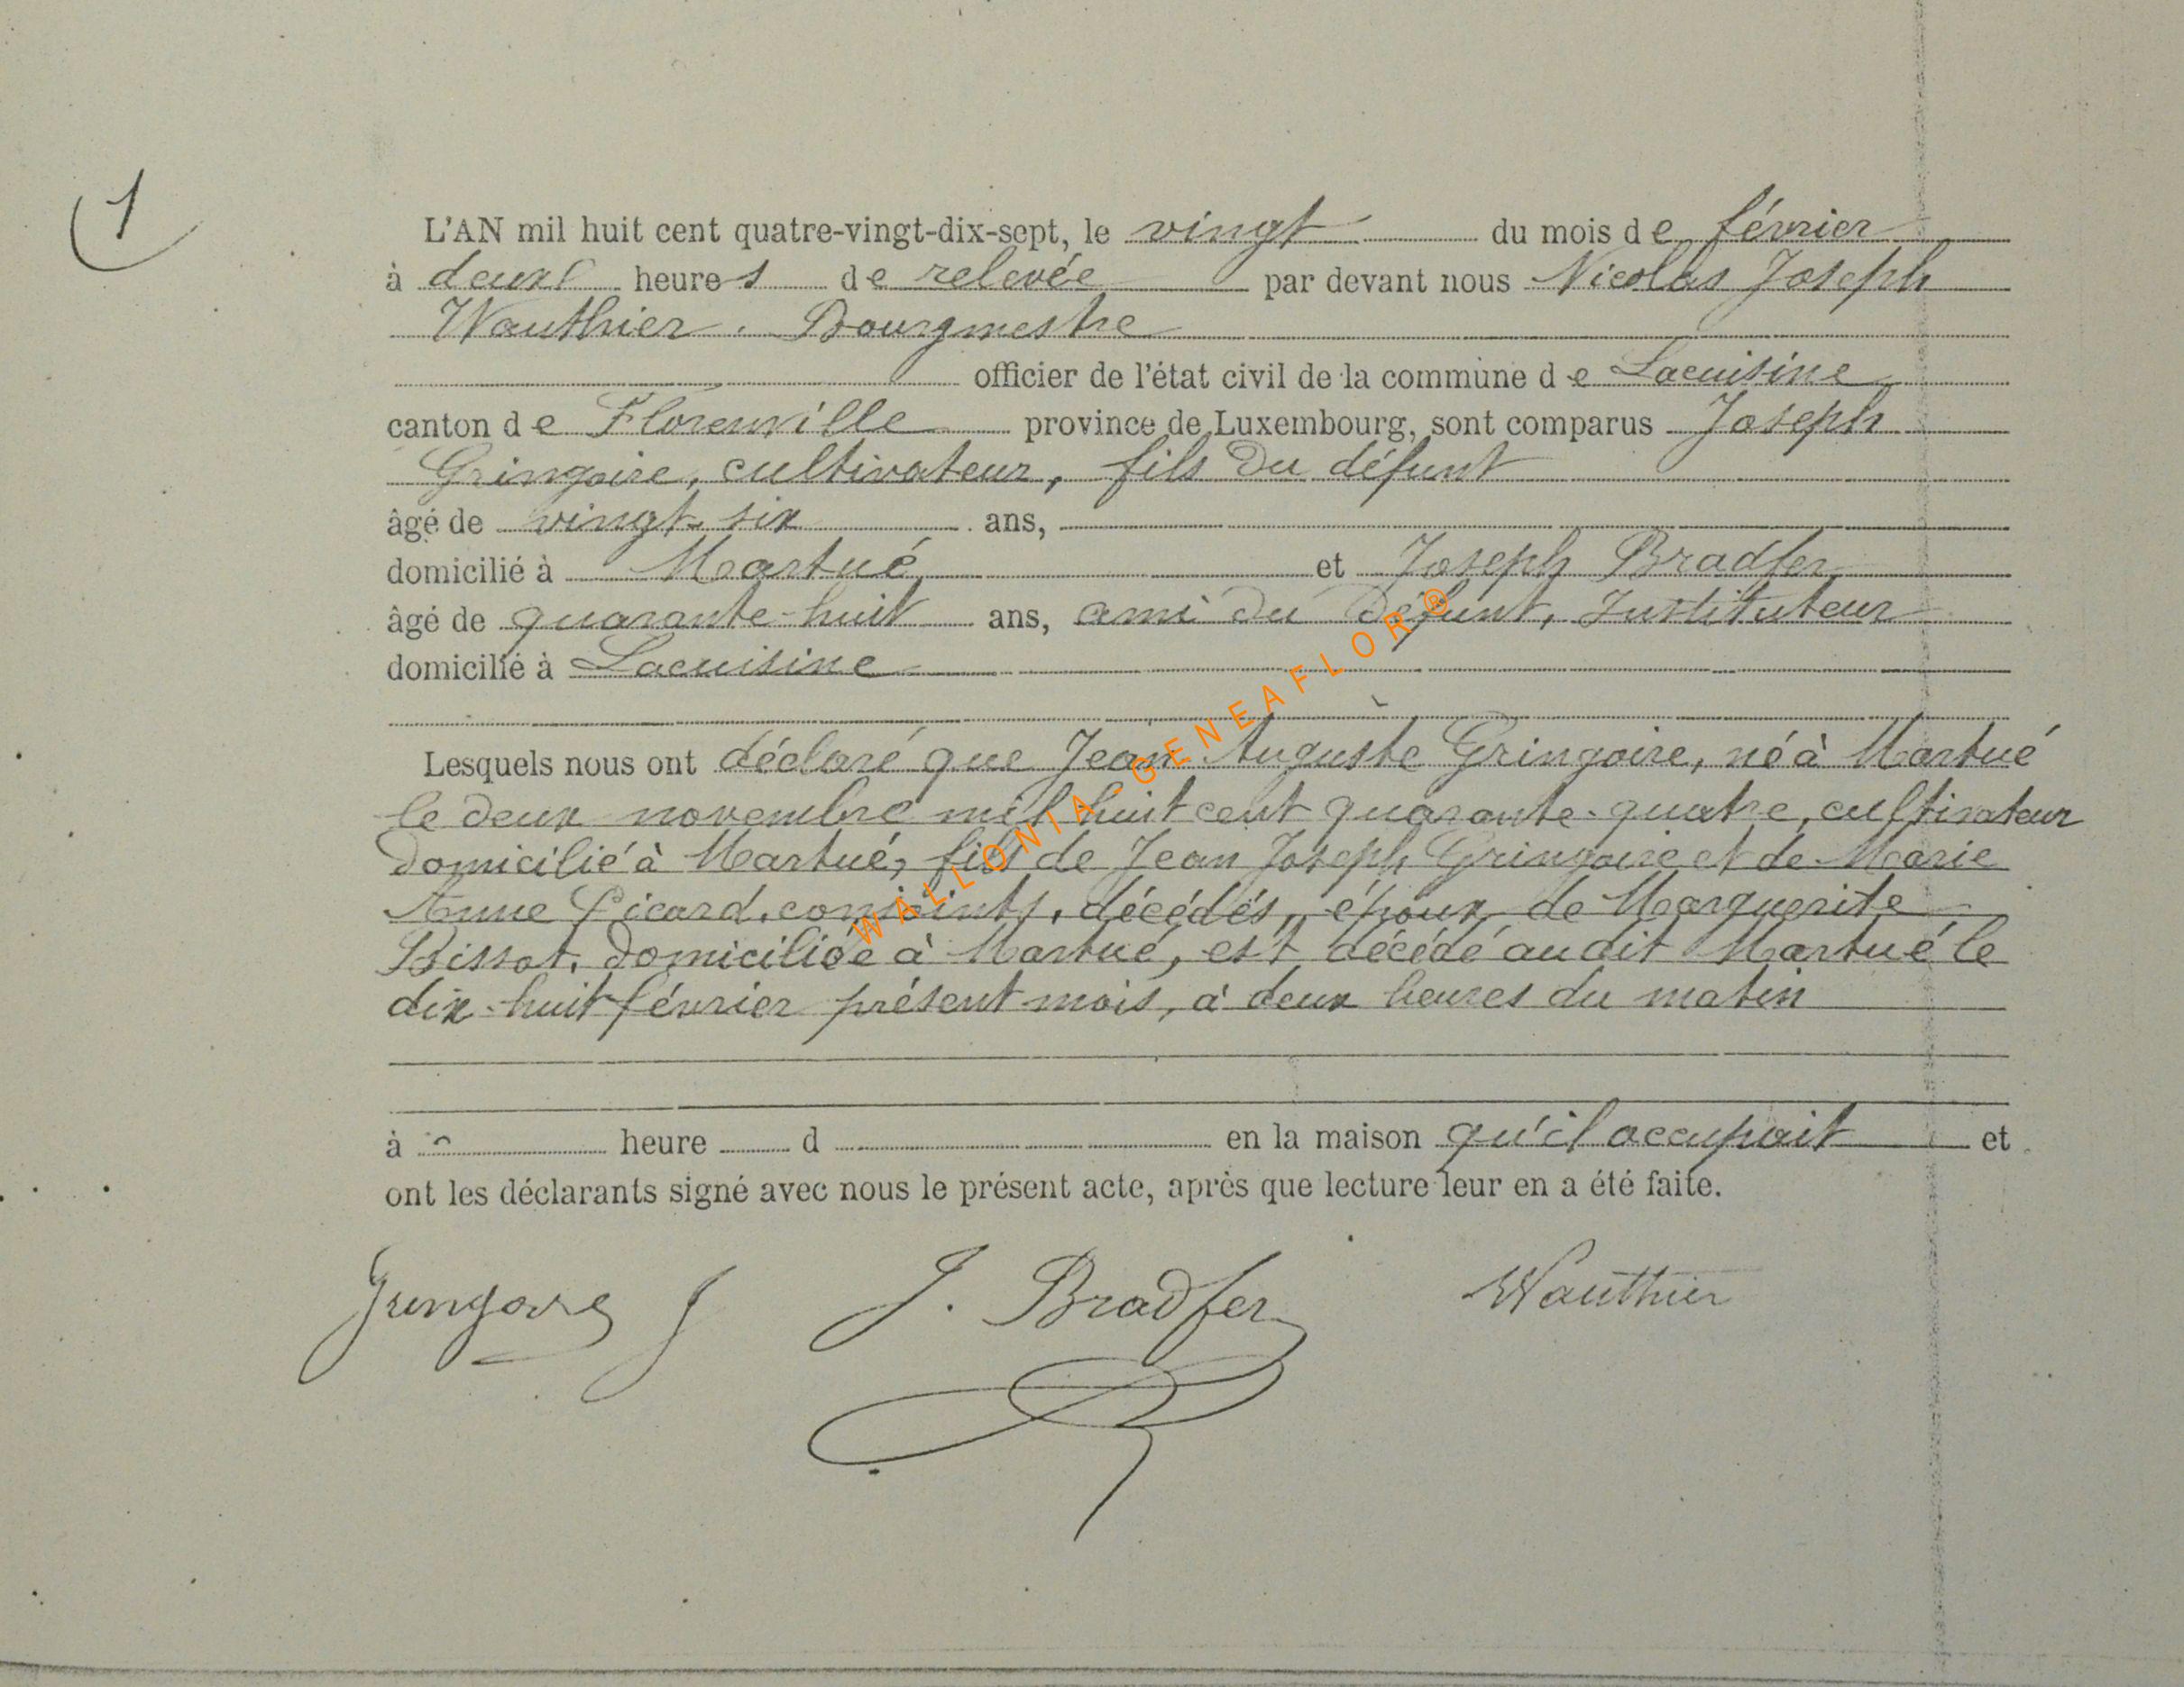 1
L'AN mil huit cent quatre-vingt-dix-sept, le vingt du mois de février
à deux heures de relevée par devant nous Nicolas Joseph
Wauthier, Bourgmestre
officier de l'état civil de la commune de Lacuisine
canton de Florenville province de Luxembourg, sont comparus Joseph
Gringoire, cultivateur, fils du défunt
âgé de vingt-six ans,
domicilié à Martué et Joseph Bradfer
âgé de quarante-huit ans, ami du défunt, Instituteur
domicilié à Lacuisine
Lesquels nous ont déclaré que Jean Auguste Gringoire, né à Martué
le deux novembre mil huit cent quarante-quatre, cultivateur
domicilié à Martué, fils de Jean Joseph Gringoire et de Marie
Anne Picard, conjoints, décédés, époux de Marguerite
Bissot, domiciliée à Martué, est décédé audit Martué le
dix-huit février présent mois, à deux heures du matin
à heure d en la maison qu'il occupait et
ont les déclarants signé avec nous le présent acte, après que lecture leur en a été faite.
Gringoire J J. Bradfer Wauthier
WALLONIA-GENEAFLOR®